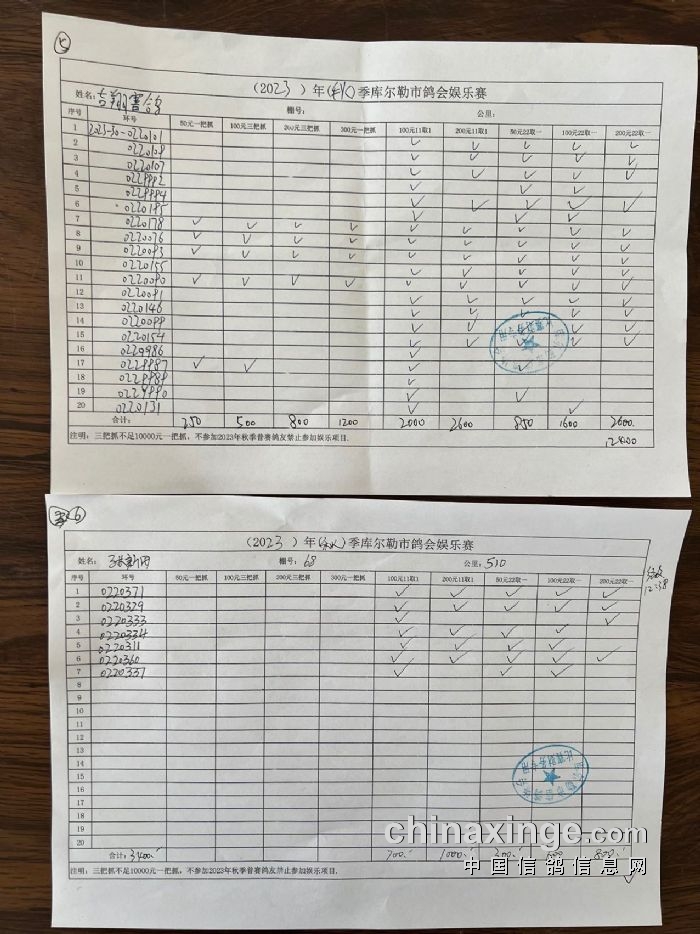 5
（2023 ）年（秋）季库尔勒市鸽会娱乐赛
姓名：吉翔赛鸽 棚号： 公里：
序号 环号 50元一把抓 100元三把抓 200元三把抓 300元一把抓 100元11取1 200元11取1 50元22取一 100元22取一 200元22取一
1 2023-30-0220101
2 0220108
3 0220107
4 0229992
5 0229994
6 0220185
7 0220178
8 0220076
9 0220093
10 0220155
11 0220080
12 0220091
13 0220146
14 0220099
15 0220154
16 0229986
17 0229987
18 0229989
19 0229990
20 0220131
合计： 250 500 800 1200 2000 2600 850 1600 2600
注明：三把抓不足10000元一把抓，不参加2023年秋季普赛鸽友禁止参加娱乐项目. 12400
6
（2023 ）年（秋）季库尔勒市鸽会娱乐赛
姓名： 棚号：68 公里：510
序号 环号 50元一把抓 100元三把抓 200元三把抓 300元一把抓 100元11取1 200元11取1 50元22取一 100元22取一 200元22取一
1 0220371
2 0220329
3 0220333
4 0220334
5 0220311
6 0220360
7 0220337
8
9
10
11
12
13
14
15
16
17
18
19
20
合计：3400 700 1000 300 600 800
注明：三把抓不足10000元一把抓，不参加2023年秋季普赛鸽友禁止参加娱乐项目.
chinaxinge.com
中国信鸽信息网